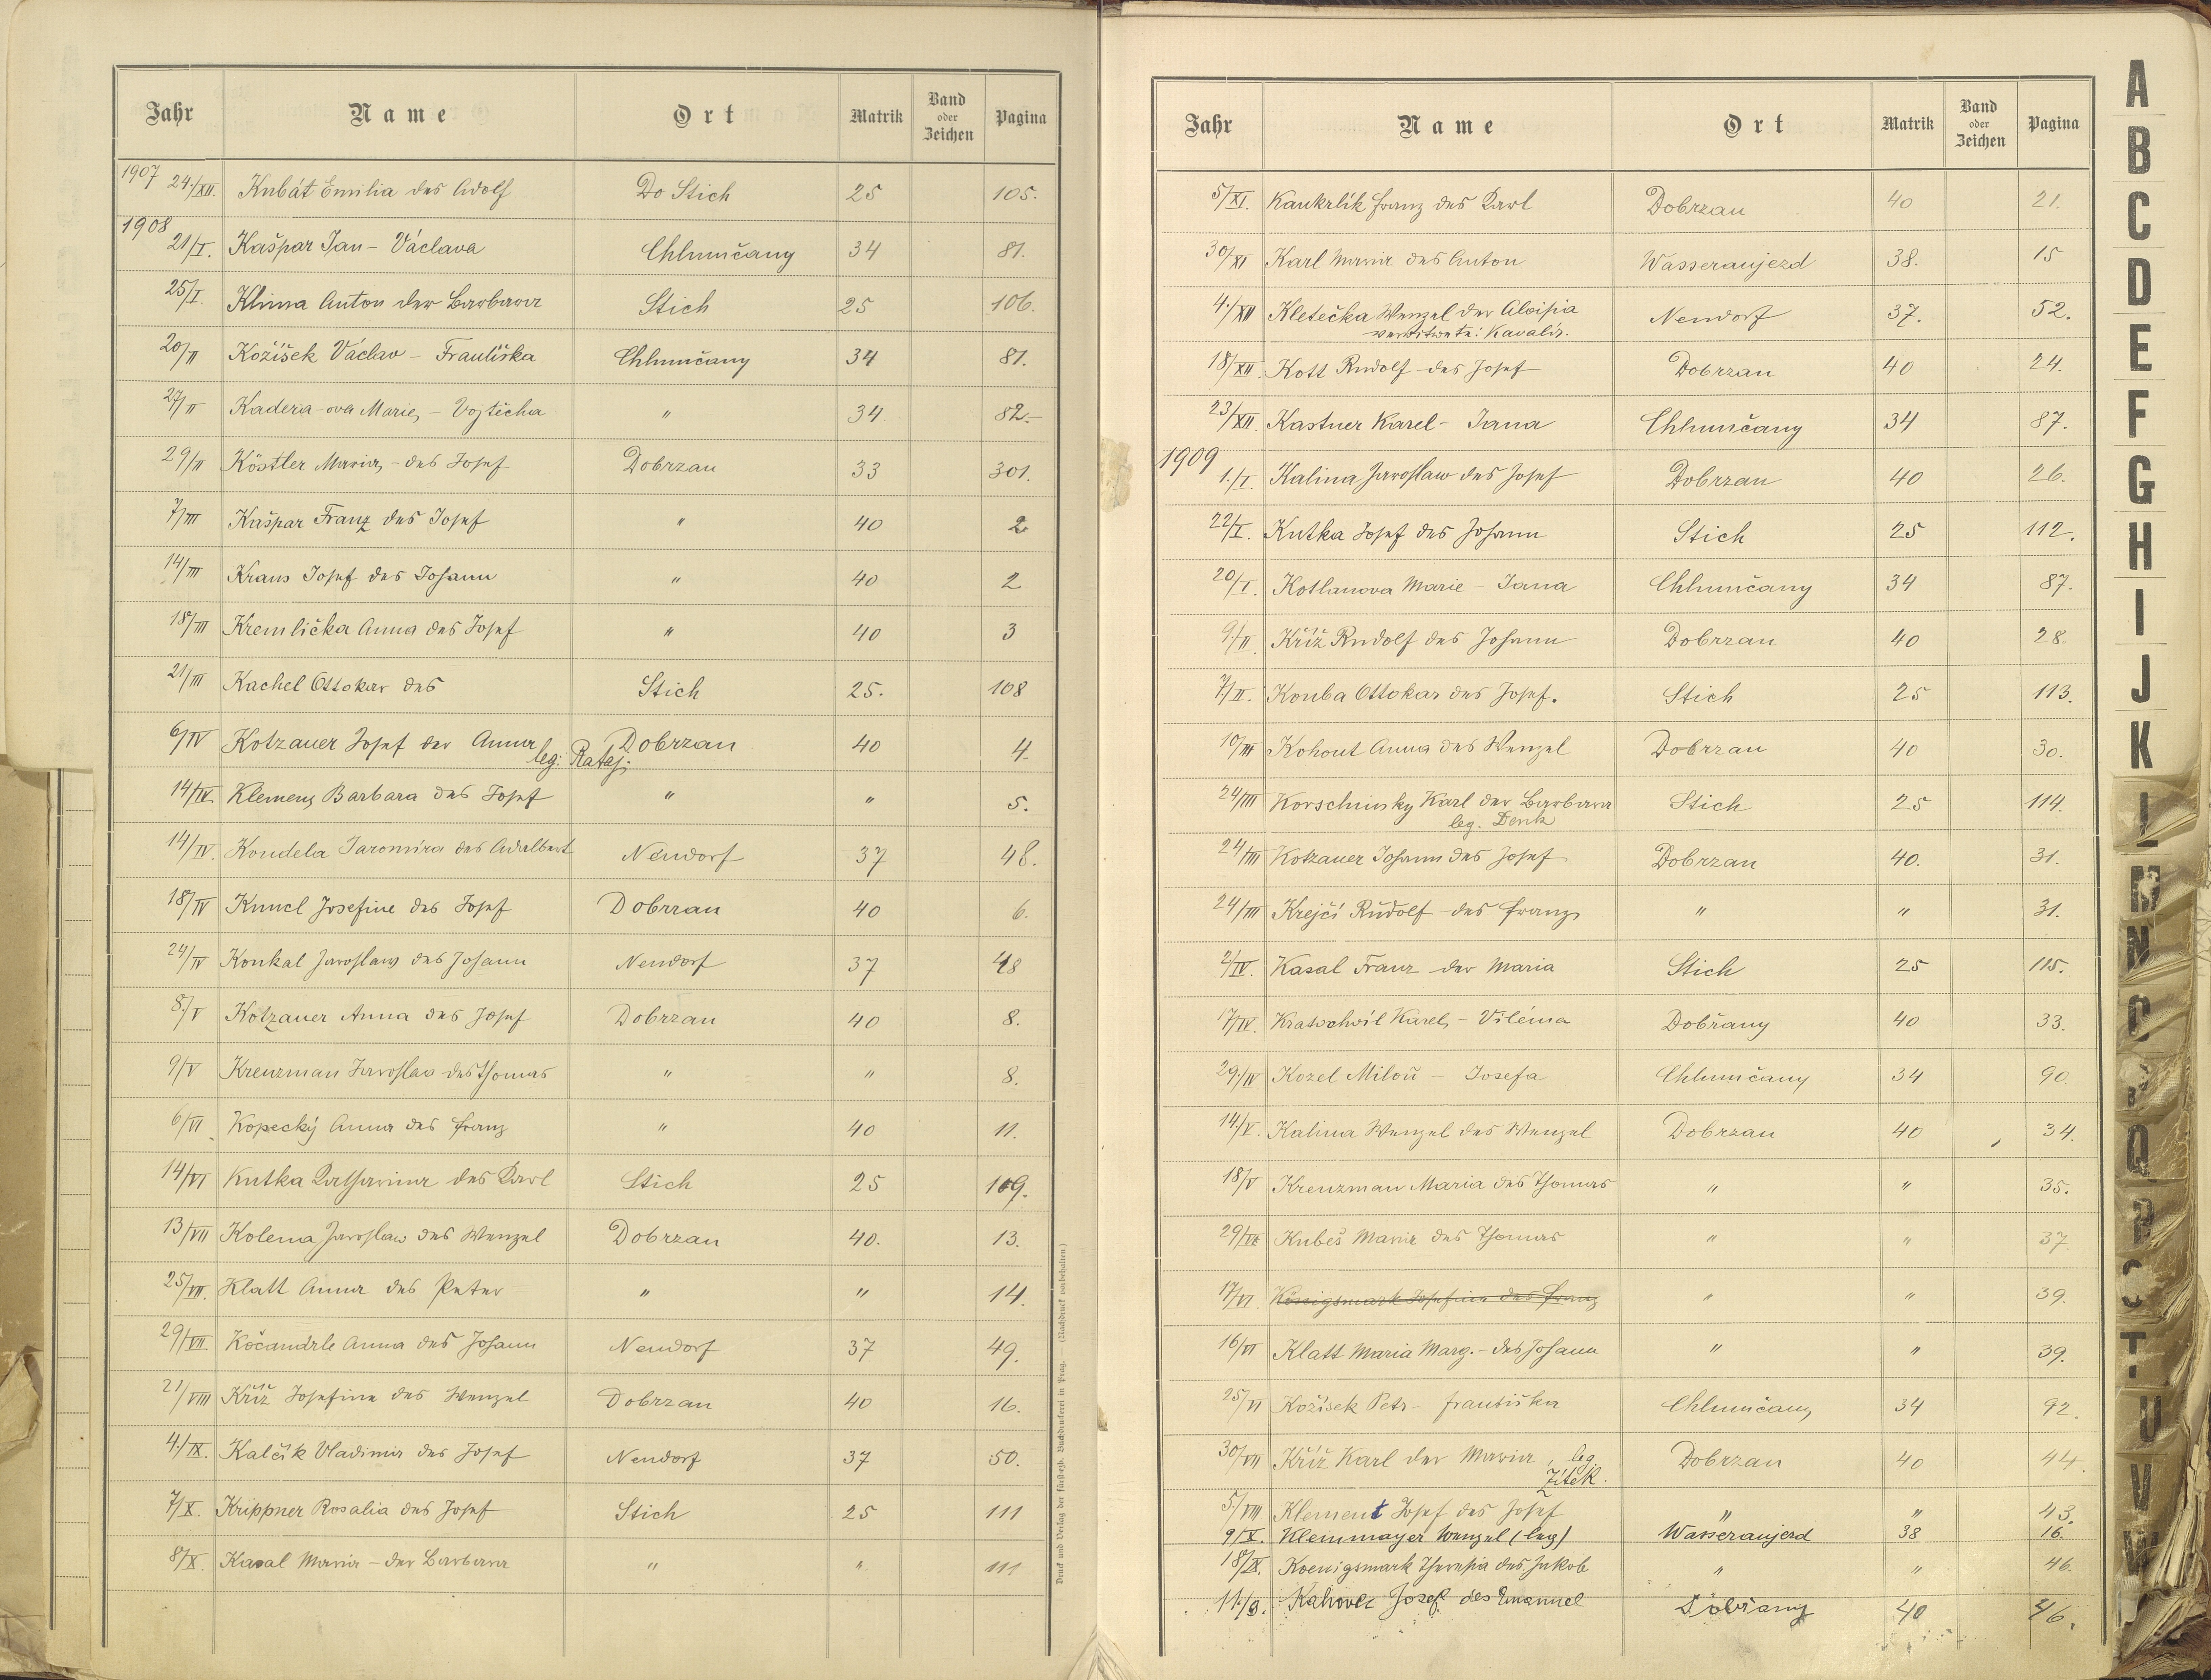 Jahr Name Ort Matrik Band oder Zeichen Pagina
1907 24./XII. Kubát Emilia des Adolf Do Stich 25 105.
1908
21/I. Kašpar Jan - Václava Chlumčany 34 81.
25/I. Klima Anton der Barbara Stich 25 106.
20/II Kožíšek Václav - Františka Chlumčany 34 81.
27/II Kadera-ova Marie, - Vojtěcha " 34 82.
29/II Köstler Maria, - des Josef Dobrzan 33 301.
7/III Kašpar Franz des Josef " 40 2
14/III Kraus Josef des Johann " 40 2
18/III Kremlička Anna des Josef " 40 3
21/III Kachel Ottokar des Stich 25. 108
6/IV Kotzauer Josef der Anna Dobrzan 40 4.
leg: Rataj.
14/IV. Klemens Barbara des Josef " " 5.
14/IV. Koudela Jaromira des Adalbert Neudorf 37 48.
18/IV Kuncl Josefine des Josef Dobrzan 40 6.
24/IV Koukal Jaroslaw des Johann Neudorf 37 48
8./V Kotzauer Anna des Josef Dobrzan 40 8.
9/V Kreuzman Jaroslav des Thomas " " 8.
6/VI Kopecký Anna des Franz " 40 11.
14/VI Kutka Katharina des Karl Stich 25 109.
13/VII Kolena Jaroslaw des Wenzel Dobrzan 40. 13.
25/VII. Klatt Anna des Peter " " 14.
29/VII. Kočandrle Anna des Johann Neudorf 37 49.
21/VIII Kříž Josefine des Wenzel Dobrzan 40 16.
4./IX. Kalčík Vladimir des Josef Neudorf 37 50.
7/X. Krippner Rosalia des Josef Stich 25 111
8/X. Kasal Maria - der Barbara " " 111
Druck und Verlag der fürsterzb. Buchdruckerei in Prag. — (Nachdruck vorbehalten.)
Jahr Name Ort Matrik Band oder Zeichen Pagina
5/XI. Kaukrlík Franz des Karl Dobrzan 40 21.
30/XI Karl Maria des Anton Wasseraujezd 38. 15
4./XII Kletečka Wenzel der Aloisia Neudorf 37. 52.
Kavalír.
18/XII Kott Rudolf des Josef Dobrzan 40 24.
23/XII. Kastner Karel - Jana Chlumčany 34 87.
1909
1./I. Kalina Jaroslaw des Josef Dobrzan 40 26.
22/I. Kutka Josef des Johann Stich 25 112.
20/I. Kotlanova Marie - Jana Chlumčany 34 87.
9./II Kříž Rudolf des Johann Dobrzan 40 28.
7./II. Kouba Ottokar des Josef. Stich 25 113.
10/III Kohout Anna des Wenzel Dobrzan 40 30.
24/III Korschinsky Karl der Barbara Stich 25 114.
leg. Denk
24/III Kotzauer Johann des Josef Dobrzan 40. 31.
24/III Krejčí Rudolf des Franz " " 31.
2/IV. Kasal Franz der Maria Stich 25 115.
17/IV. Kratochwil Karel, - Viléma Dobřany 40 33.
29./IV Kozel Miloň - Josefa Chlumčany 34 90.
14/V. Kalina Wenzel des Wenzel Dobrzan 40 34.
18/V Kreuzman Maria des Thomas " " 35.
29/VI Kubeš Maria des Thomas " " 37.
17/VI. Königsmark Josefine des Franz " " 39.
16/VI Klatt Maria Marg. - des Johann " " 39.
25/VI Kožíšek Petr - Františka Chlumčany 34 92.
30/VII Kříž Karl der Maria, leg. Dobrzan 40 44.
Zítek.
5./VIII Klement Josef des Josef " " 43.
9/X. Kleinmayer Wenzel (leg) Wasseraujezd 38 16.
18/IX. Koenigsmark Theresia des Jakob " " 46.
11./9. Josef des Emanuel Dobřany 40 46.
A
B
C
D
E
F
G
H
I
J
K
L
M
N
O
P
Q
R
S
T
U
V
W